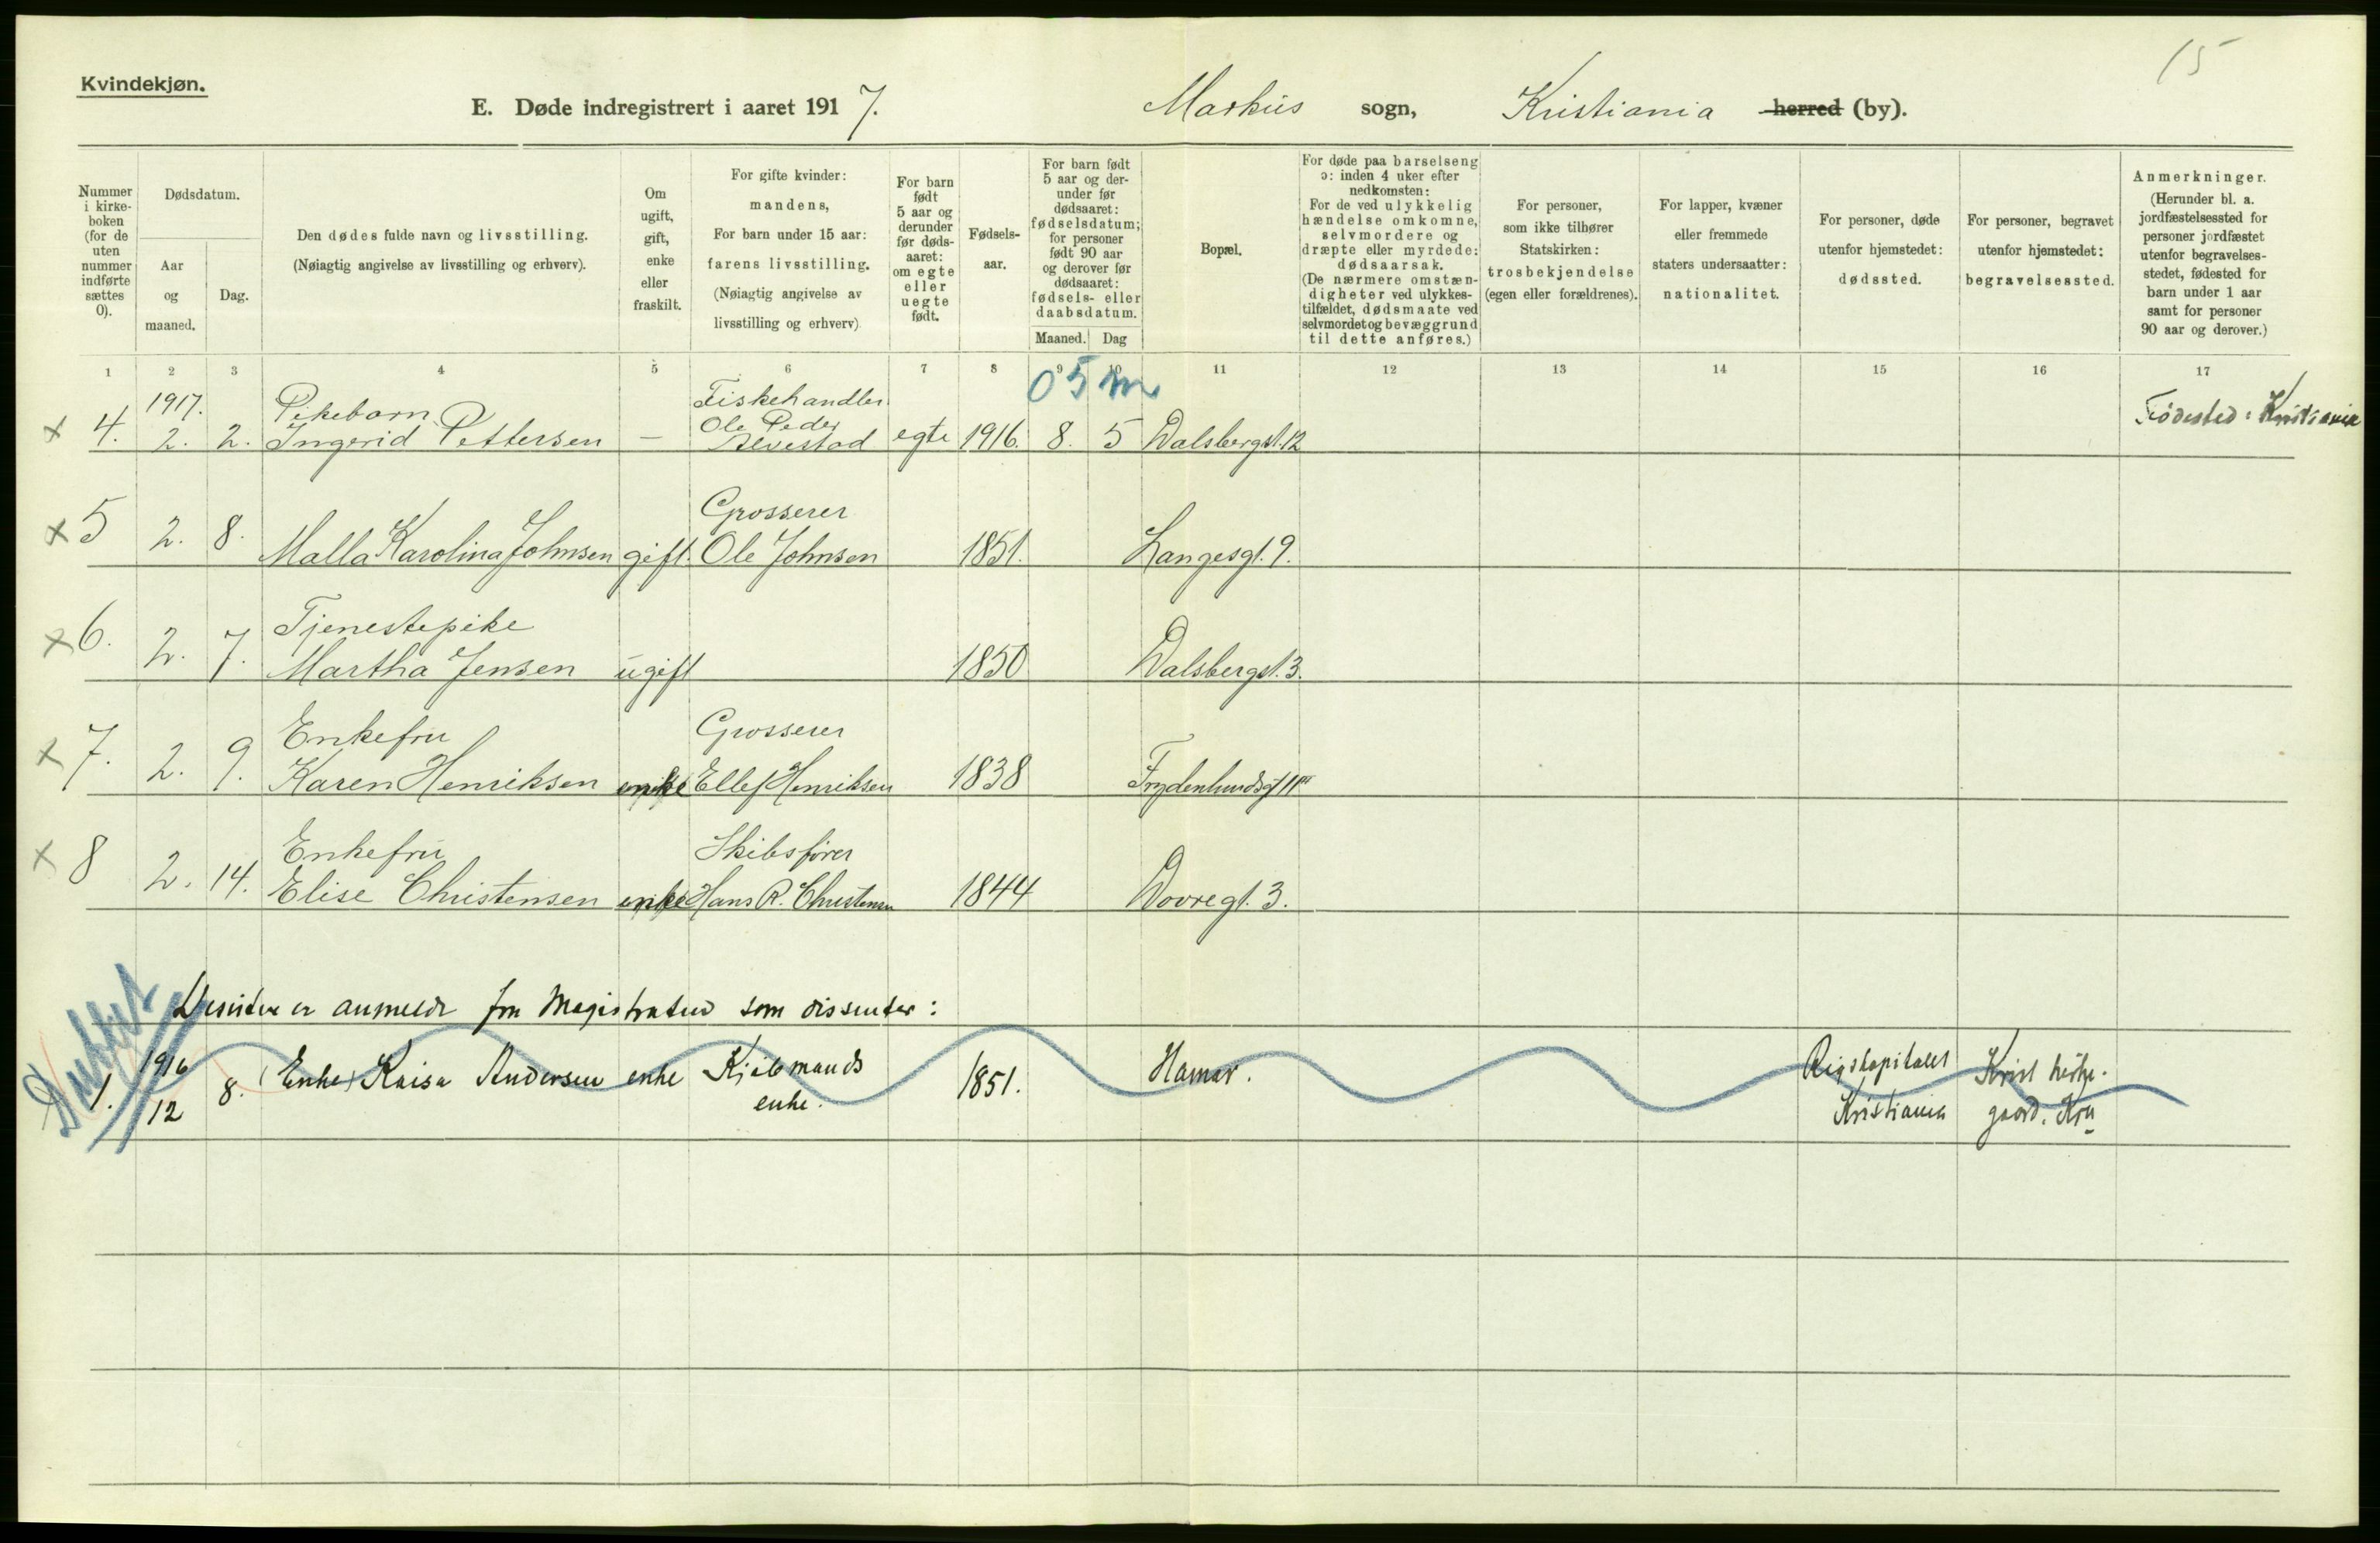 15
Kvindekjøn.
E. Døde indregistrert i aaret 1917. Markus sogn, Kristiania herred (by).
Nummer i kirke-boken (for de uten nummer indførte sættes 0).
Dødsdatum.
Aar og maaned.
Dag.
Den dødes fulde navn og livsstilling.
(Nøiagtig angivelse av livsstilling og erhverv).
Om ugift, gift, enke eller fraskilt.
For gifte kvinder:
mandens,
For barn under 15 aar:
farens livsstilling.
(Nøiagtig angivelse av
livsstilling og erhverv)
For barn født 5 aar og derunder før døds-aaret: om egte eller uegte født.
Fødsels-aar.
For barn født 5 aar og der-under før dødsaaret: fødselsdatum; for personer født 90 aar og derover før dødsaaret: fødsels- eller daabsdatum.
Maaned. Dag
Bopæl.
For døde paa barselseng ɔ: inden 4 uker efter nedkomsten:
For de ved ulykkelig hændelse omkomne, selvmordere og dræpte eller myrdede: dødsaarsak.
(De nærmere omstæn-digheter ved ulykkes-tilfældet, dødsmaate ved selvmordet og bevæggrund til dette anføres.)
For personer, som ikke tilhører Statskirken: trosbekjendelse (egen eller forældrenes).
For lapper, kvæner eller fremmede staters undersaatter: nationalitet.
For personer, døde utenfor hjemstedet: dødssted.
For personer, begravet utenfor hjemstedet: begravelsessted.
Anmerkninger.
(Herunder bl. a. jordfæstelsessted for personer jordfæstet utenfor begravelses-stedet, fødested for barn under 1 aar samt for personer 90 aar og derover.)
1 2 3 4 5 6 7 8 9 10 11 12 13 14 15 16 17
05 m
1917. Pikebarn Fiskehandler Ole Peder
x 4. 2. 2. Ingerid Pettersen — Alvestad egte 1916. 8. 5 Dalsbergst. 12 Fødested: Kristiania
Grosserer
x 5 2. 8. Malla Karolina Johnsen gift. Ole Johnsen 1851. Langesgt. 9.
Tjenestepike
x 6. 2. 7. Martha Jensen ugift 1850 Dalsbergst. 3.
Enkefru Grosserer
x 7. 2. 9. Karen Henriksen enke Ellef Henriksen 1838 Frydenlundsgt 11
Enkefru Skibsfører
x 8 2. 14. Elise Christensen enke Hans R. Christensen 1844 Dovregt. 3.
er anmeldt fra Magistraten som dissenter:
1916 (Enke) Kaisa Andersen enke Kjøbmands 1851. Hamar. Rigshospitalet Krist kirke-
1. 12 8. enke. Kristiania gaard. Kra